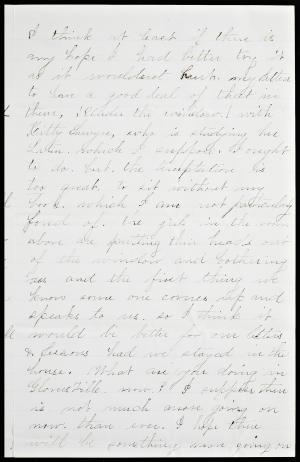 I think at least if there is
any hope I had better try it
as it wouldn't hurt my letter
to have a good deal of that in
there, (Under the window.) with
Kitty Sawyer, who is studying her
Latin. Which I suppose I ought
to do. but the temptation is
too great. to sit without my
book. which I am not particularly
fond of. The girls in the room
above are putting their heads out
of the window and bothering
us and the first thing we
know some one comes up and
speaks to us. so I think it
would be better for our letters
& lessons had we stayed in the
house. What are you doing in
Gloversville now? I suppose there
is not much more going on
now. than ever. I hope there
will be something more going on